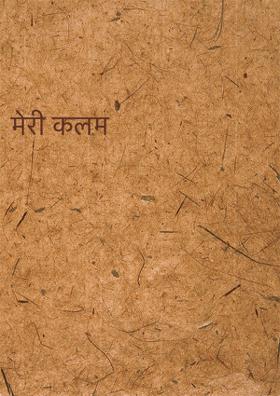 मेरी कलम